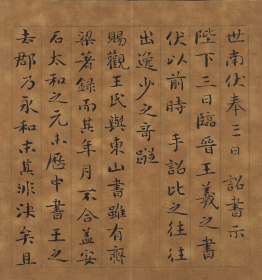 世南伏奉三日 詔書示
陛下三日臨晉王羲之書
伏以前時 手詔比之往往
出逸少之奇蹤
賜觀王氏與東山書雖有齊
梁著錄而其年月不合蓋安
石太和之元未歷中書王之
去郡乃永和末其非決矣且